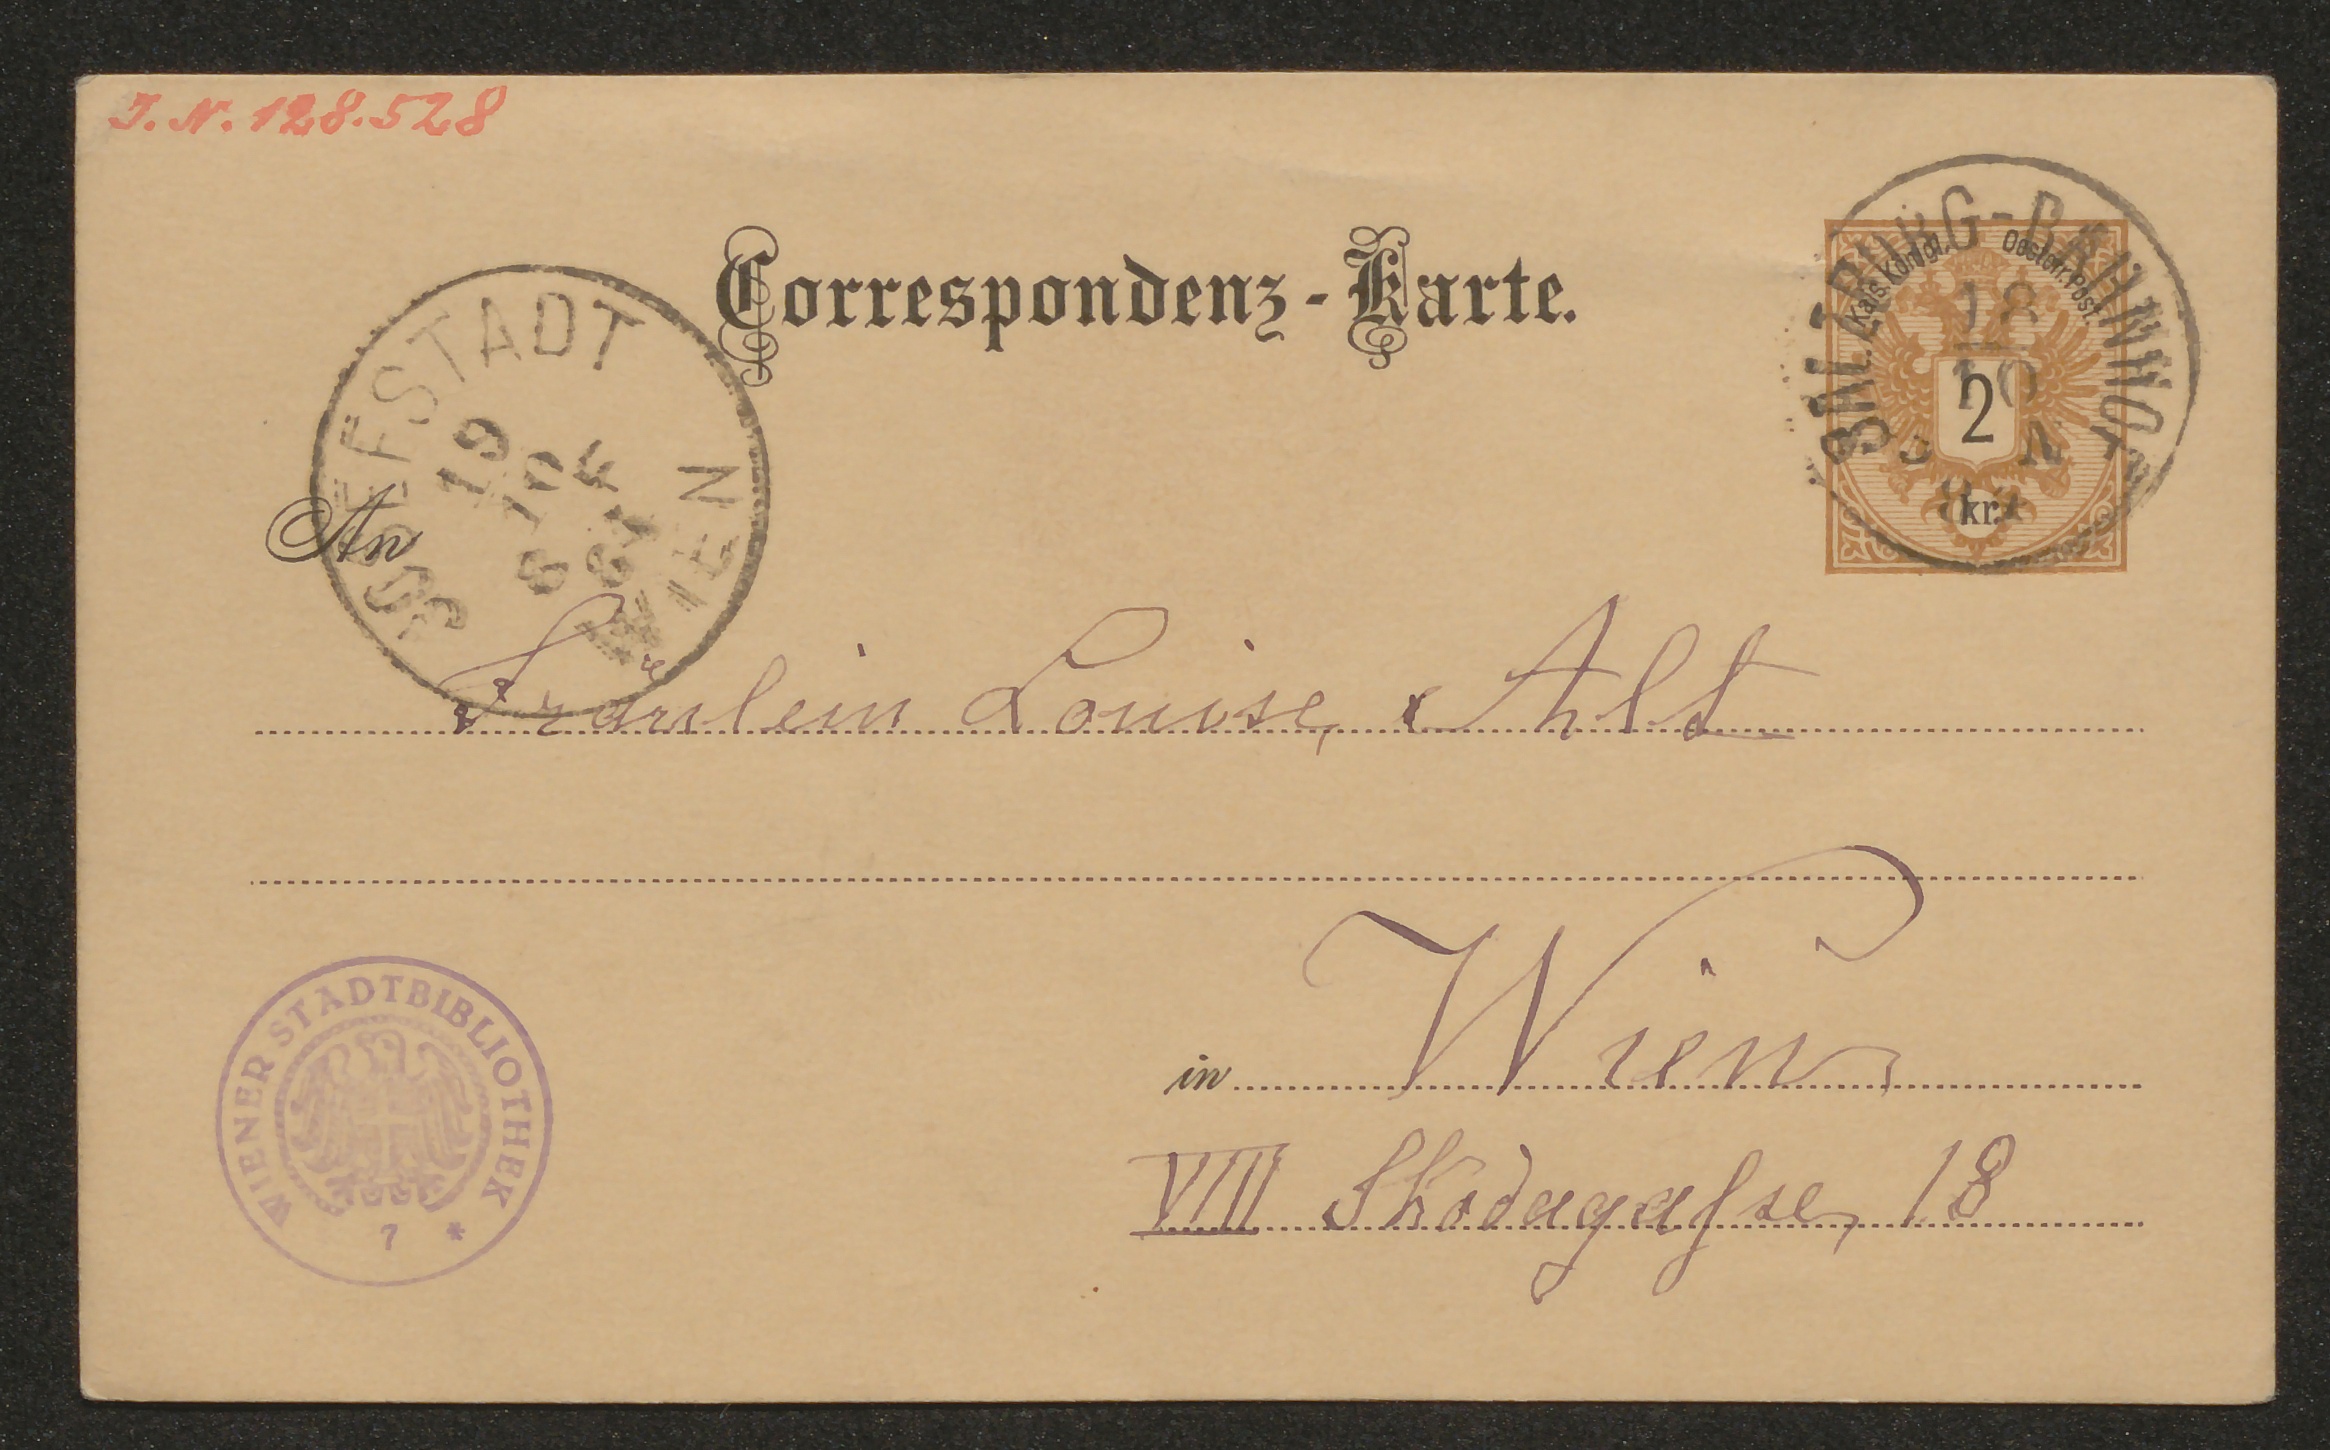 J. N. 128.528
Correspondenz-Karte.
SALZBURG-BAHNHOF
18
10
N
Kais. Königl. Oesterr. Post.
2
kr.
JOSEFSTADT
19
10
8 F
84
WIEN
An
Fräulein Louise Alt
in Wien,
VIII Skodagasse, 18
WIENER STADTBIBLIOTHEK
7 *